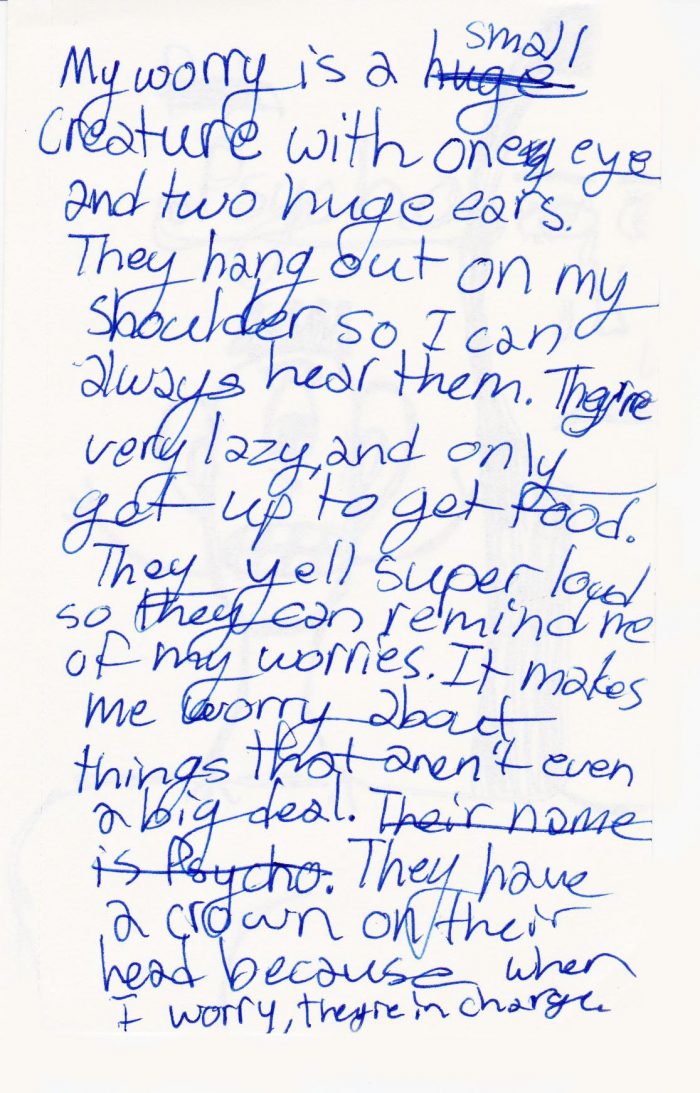 My worry is a ~~huge~~ small
creature with one eye
and two huge ears.
They hang out on my
shoulder so I can
always hear them. They're
very lazy, and only
get up to get food.
They yell super loud
so they can remind me
of my worries. It makes
me worry about
things that aren't even
a big deal. ~~Their name~~
~~is Psycho.~~ They have
a crown on their
head because when
I worry, they're in charge.